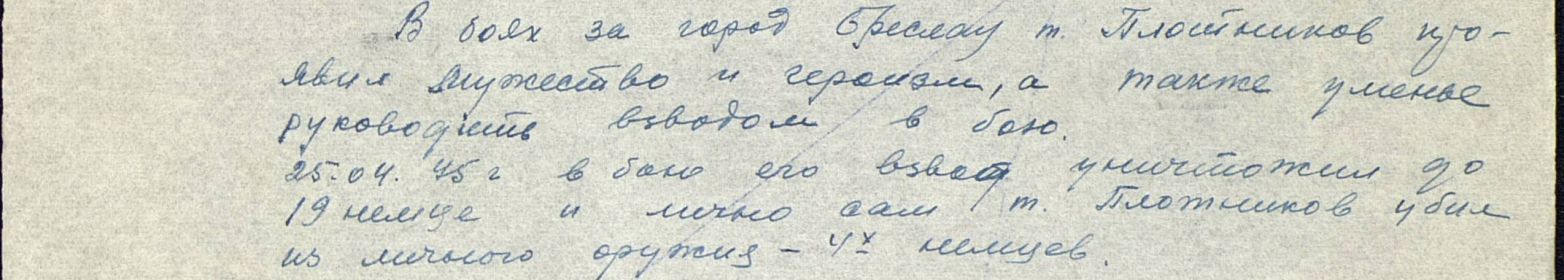 В боях за город Бреслау т. Плотников про-
явил мужество и героизм, а также уменье
руководить взводом в бою.
25.04.45 г в бою его взвод уничтожил до
19 немце и лично сам т. Плотников убил
из личного оружия – 4х немцев.